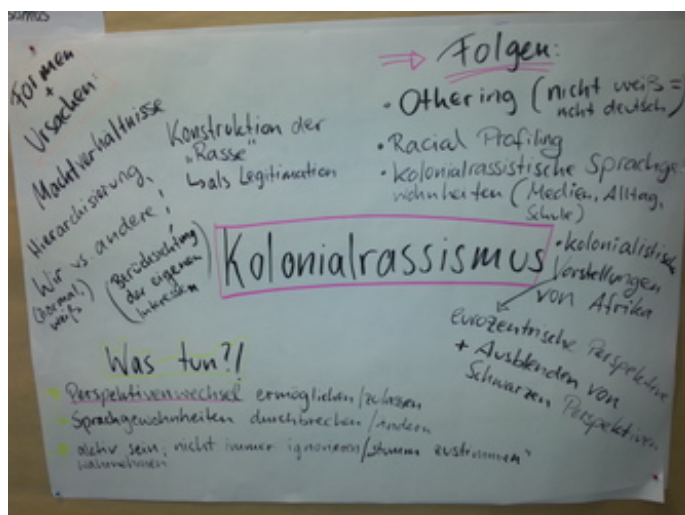 Formen
+
Ursachen:
Machtverhältnisse
Hierarchisierung,
Wir vs. andere,
(normal,
weiß)
Konstruktion der
„Rasse"
↳ als Legitimation
(Berücksichtung
der eigenen
Interessen)
⇒ Folgen:
• Othering (nicht weiß =
nicht deutsch)
• Racial Profiling
• kolonialrassistische Sprachge-
wohnheiten (Medien, Alltag,
Schule)
Kolonialrassismus
• kolonialistische
Vorstellungen
von Afrika
eurozentrische Perspektive
+ Ausblenden von
Schwarzen Perspektiven
Was tun?!
Perspektivenwechsel ermöglichen/zulassen
Sprachgewohnheiten durchbrechen/ändern
aktiv sein, nicht immer ignorieren/„stumm zustimmen"
wahrnehmen